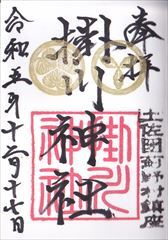 奉拝
土佐國 鎮座
掛川神社
掛川神社
令和五年十二月十七日